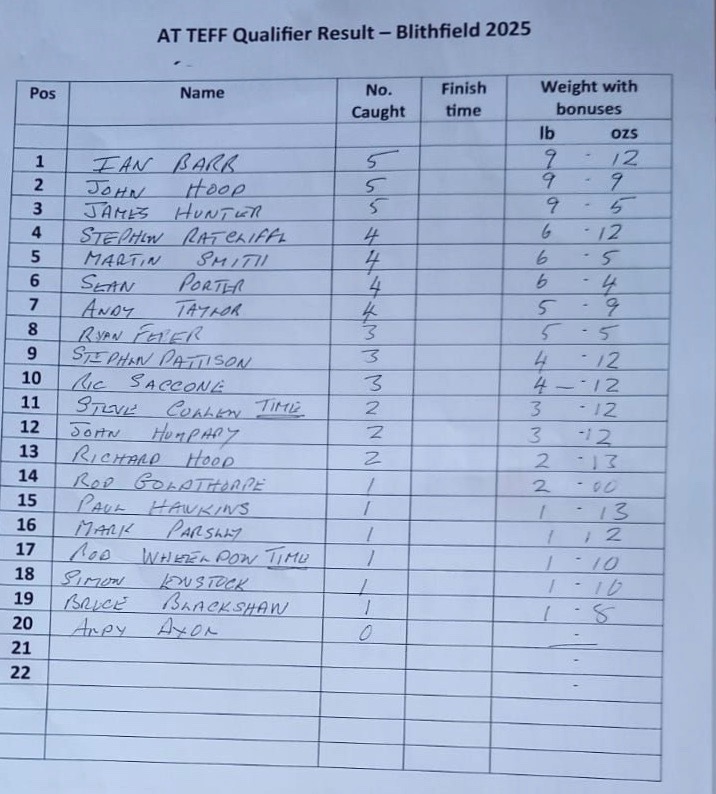 AT TEFF Qualifier Result – Blithfield 2025
Pos Name No. Caught Finish time Weight with bonuses
lb ozs
1 IAN BARR 5 9 - 12
2 JOHN HOOD 5 9 - 9
3 JAMES HUNTER 5 9 - 5
4 STEPHEN RATCLIFFE 4 6 - 12
5 MARTIN SMITH 4 6 - 5
6 SEAN PORTER 4 6 - 4
7 ANDY TAYLOR 4 5 - 9
8 RYAN 3 5 - 5
9 STEPHEN PATTISON 3 4 - 12
10 RIC SACCONE 3 4 - 12
11 STEVE CULLEN TIME 2 3 - 12
12 JOHN 2 3 - 12
13 RICHARD HOOD 2 2 - 13
14 ROD GOLDTHORPE 1 2 - 00
15 PAUL HAWKINS 1 1 - 13
16 MARK PARSLEY 1 1 12
17 ROD TIME 1 1 - 10
18 SIMON 1 1 - 10
19 BRUCE BLACKSHAW 1 1 - 8
20 ANDY AXON 0 -
21 -
22 -